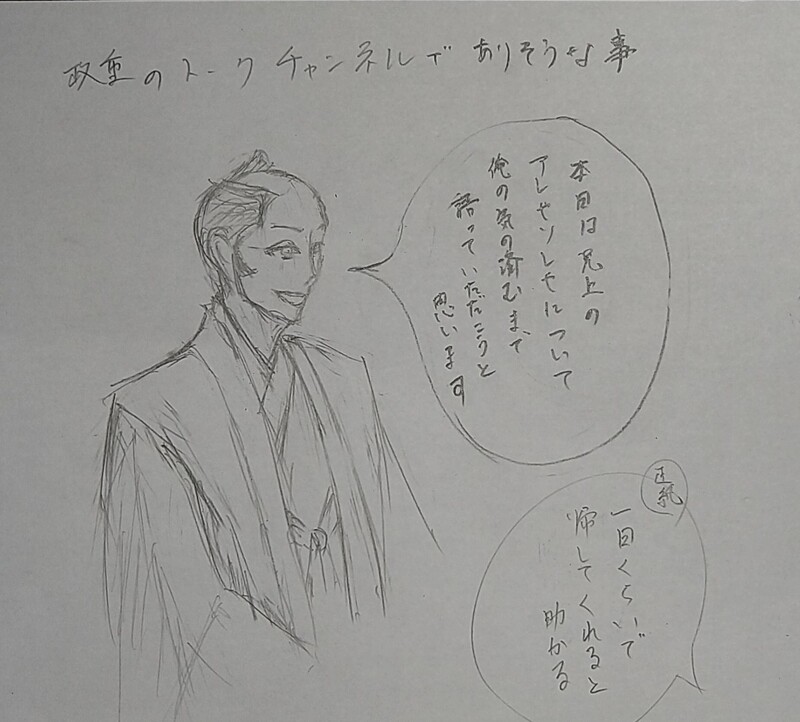 政重のトークチャンネルでありそうな事
本日は兄上の
アレやソレやについて
俺の気の済むまで
語っていただこうと
思います
正純
一日くらいで
帰してくれると
助かる